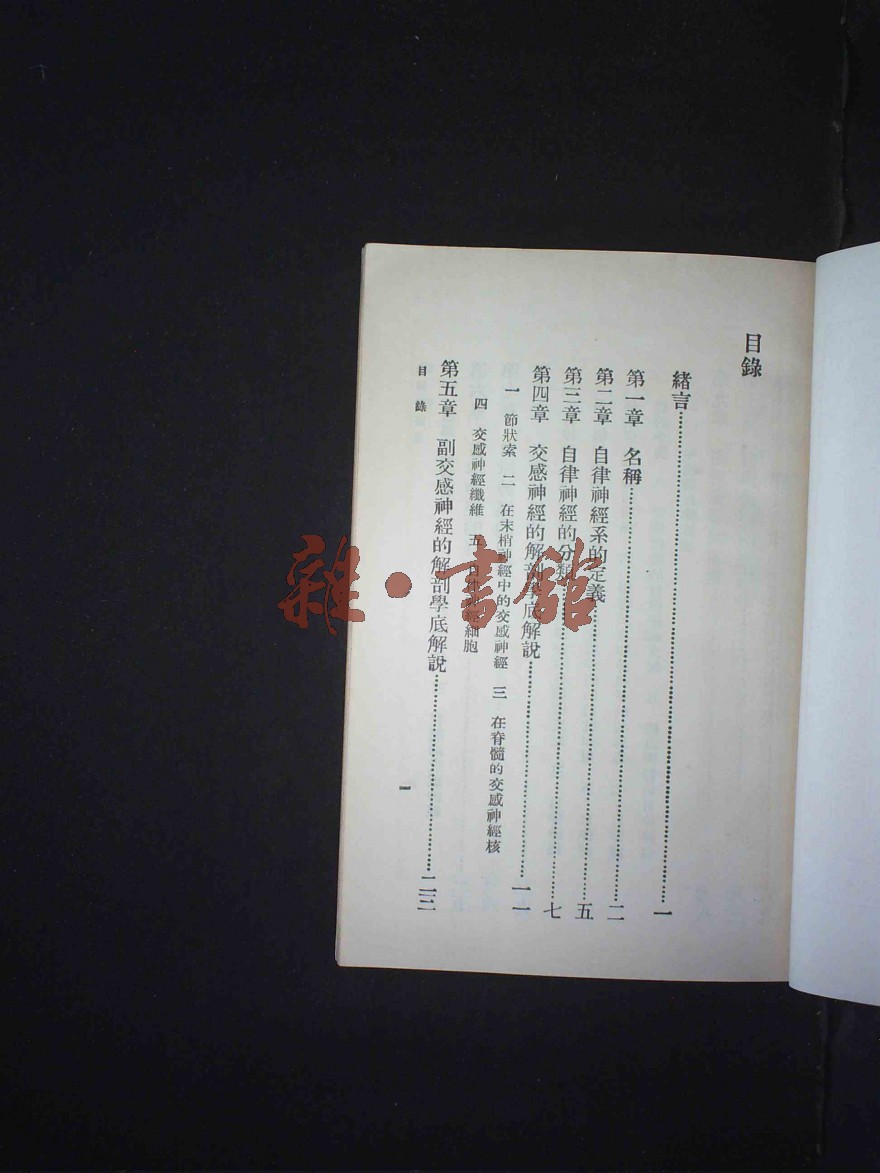 目錄
緒言……一
第一章 名稱……二
第二章 自律神經系的定義……五
第三章 自律神經的分類……七
第四章 交感神經的解剖學底解說……一一
一 節狀索 二 在末梢神經中的交感神經 三 在脊髓的交感神經核
四 交感神經纖維 五 自律神經細胞
第五章 副交感神經的解剖學底解說……二三
目錄
一
雜·書館